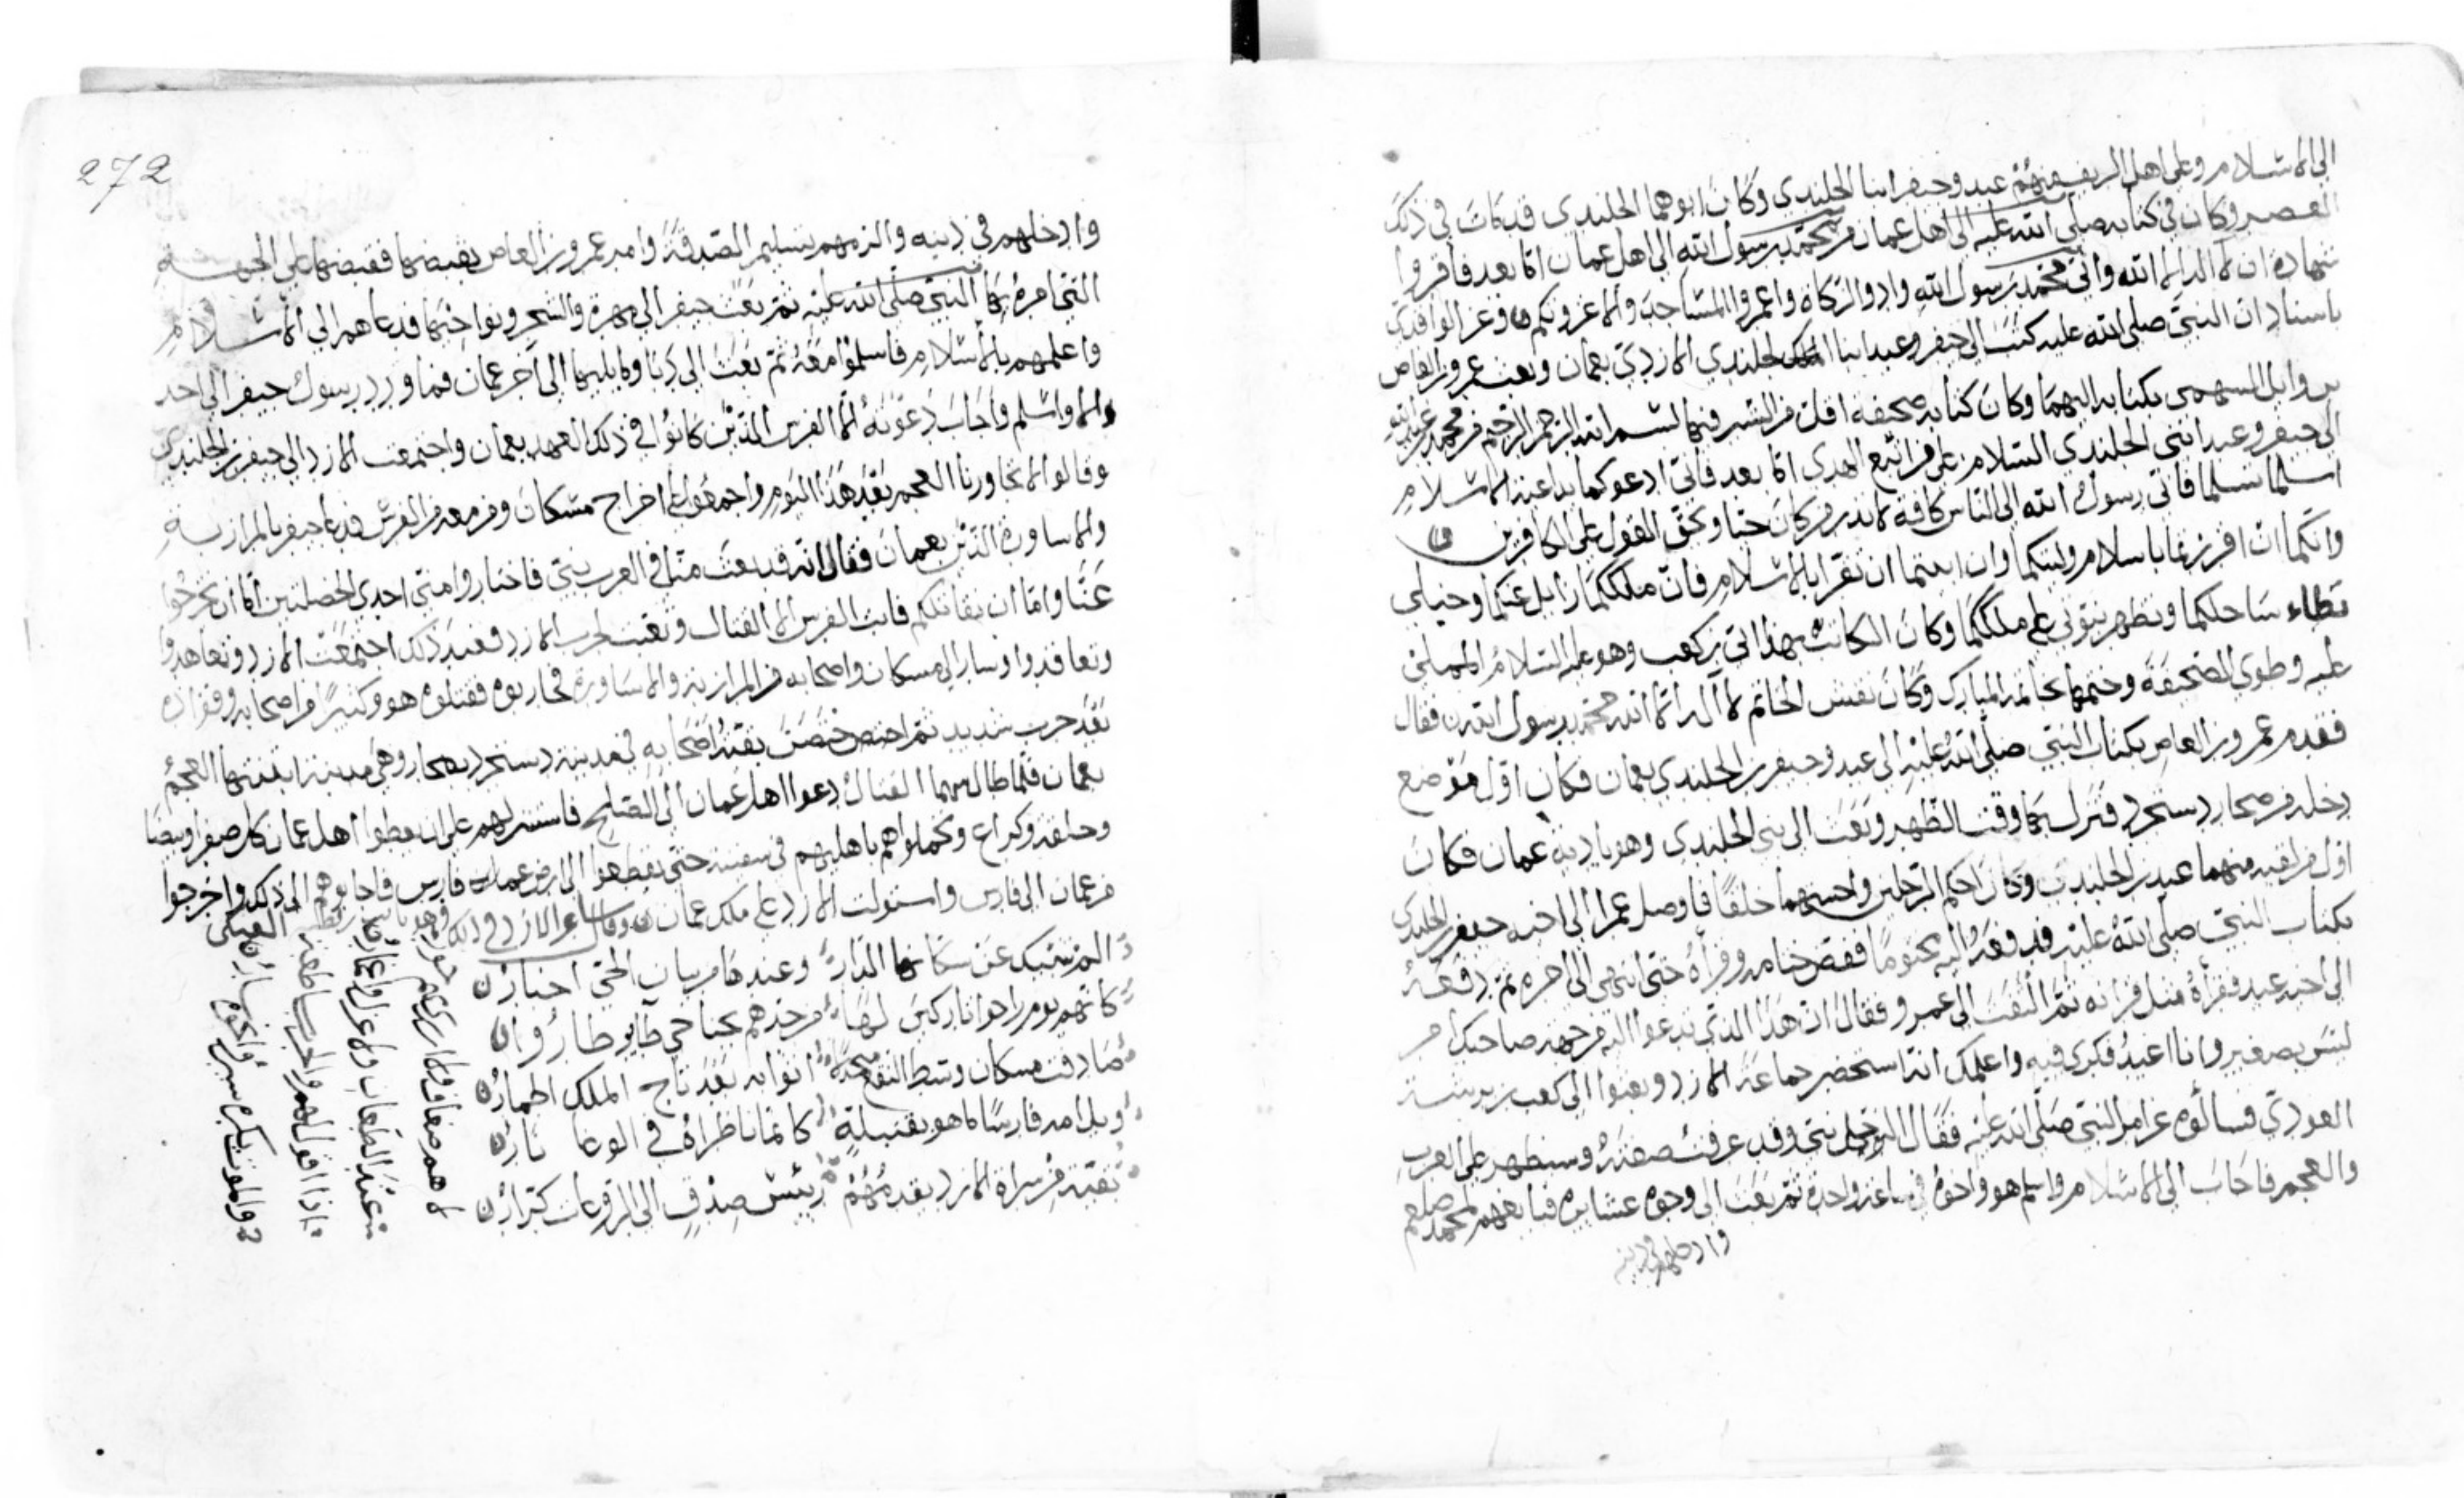 الى الاسلام وعلى اهل الريف منهم عبد وجيفر ابنا الجلندى وكان ابوهما الجلندى قد مات في ذلك
العصر وكان في كتابه صلى الله عليه الى اهل عمان من محمد رسول الله الى اهل عمان اما بعد فاقروا
شهادة ان لا اله الا الله واني محمد رسول الله وادوا الزكاة واعمروا المساجد والا غزوتكم وعن الواقدي
باسناد ان النبي صلى الله عليه كتب الى جيفر وعبد ابنا الجلندي الازدي بعمان وبعث عمرو بن العاص
بن وايل السهمي بكتابه اليهما وكان كتابه صحيفة اقل من الشبر فيها بسم الله الرحمن الرحيم من محمد بن عبد الله
الى جيفر وعبد ابني الجلندى السلام على من اتبع الهدى اما بعد فاني ادعوكما بداعية الاسلام
اسلما تسلما فاني رسول الله الى الناس كافة لانذر من كان حيا ويحق القول على الكافرين
وانكما ان اقررتما باسلام وليتكما وان ابيتما ان تقرا بالاسلام فان ملككما زايل عنكما وخيلي
تطاء ساحلكما وتظهر نبوتي على ملككما وكان الكاتب بهذا ابي بن كعب وهو عليه السلام المملي
عليه وطوى الصحيفة وختمها بخاتمه المبارك وكان نقش الخاتم لا اله الا الله محمد رسول الله فقال
فقدم عمرو بن العاص بكتاب النبي صلى الله عليه الى عبد وجيفر بن الجلندي بعمان فكان اول موضع
دخله من صحار دستجرد فنزل بها وقت الظهر وبعث الى بني الجلندى وهو بادية عمان فكان
اول من لقيه منهما عبد بن الجلندى وكان احكم الرجلين واحسنهما خلقا فاوصل عمرا الى اخيه جيفر بن الجلندى
بكتاب النبي صلى الله عليه فدفعه اليه مختوما ففض ختامه وقرأه حتى انتهى الى اخره ثم دفعه
الى اخيه عبد فقرأه مثل قرائه ثم التفت الى عمرو فقال ان هذا الذي تدعوا اليه من جهة صاحبك امر
ليس بصغير وانا اعيد فكري فيه واعلمك انه استحضر جماعة الازد وبعثوا الى كعب بن برشة
العودي فسالوه عن امر النبي صلى الله عليه فقال الرجل نبي وقد عرفت صفته وسيظهر على العرب
والعجم فاجاب الى الاسلام واسلم هو واخوه في ساعة واحدة ثم بعث الى وجوه عشايره فبايعهم لمحمد صلعم
وادخلهم في دينه
272
وادخلهم في دينه والزمهم تسليم الصدقة وامر عمرو بن العاص بقبضها فقبضها على الجهة
التي امره بها النبي صلى الله عليه ثم بعث جيفر الى مهرة والشحر ونواحيها فدعاهم الى الاسلام
واعلمهم بالاسلام فاسلموا معه ثم بعث الى دبا وما يليها الى اخر عمان فما ورد رسول جيفر الى احد
الا واسلم واجاب دعوته الا الفرس الذين كانوا في ذلك العهد بعمان واجتمعت الازد الى جيفر بن الجلندى
وقالوا لا تجاورنا العجم بعد هذا اليوم واجمعوا على اخراج مسكان ومن معه من الفرس فدعا جيفر بالمرازبة
والاساورة الذين بعمان فقال انه قد بعث منا في العرب نبي فاختاروا مني احدى الخصلتين اما ان تخرجوا
عنا واما ان نقاتلكم فابت الفرس الا القتال وتعبت لحرب الازد فعند ذلك اجتمعت الازد وتعاهدوا
وتعاقدوا وسار الى مسكان واصحابه من المرازبة والاساورة فحاربوه فقتلوه هو وكثيرا من اصحابه وقواده
بعد حرب شديد ثم تحصن بقية اصحابه في مدينة دستجرد بصحار وهي مدينة ابتنتها العجم
بعمان فلما طال بهما القتال دعوا اهل عمان الى الصلح فاستنزلهم على ان يعطوا اهل عمان كل صفرا وبيضا
وحلقة وكراع وتحملوا هم باهليهم في سفينة حتى يقطعوا الى ارض فارس فاجابوهم الى ذلك واخرجوا
من عمان الى فارس واستولت الازد على ملك عمان وقال شاعر الازد في ذلك وهو ثابت بن قطنة العتكى
الم تنبيك عن سكانها الدار وعندها من بيان الحي اخبار
كانهم يوم راحوا تاركين لها من حذهم بجناحي طاير طاروا
صادفت مسكان وسط النقع اثوابه بعد تاج الملك اطمار
ويل امه فارسا ما هو بقنبلة كانما ناظراه في الوغا نار
بفتية من سراة الازد يقدمهم رييس صدق الى الروعات كرار